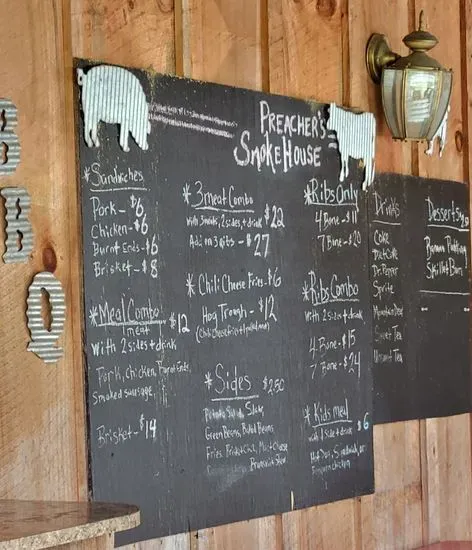 BBQ
PREACHER'S
SMOKEHOUSE
*Sandwiches
Pork - $6
Chicken - $6
Burnt Ends - $6
Brisket - $8
*Meal Combo
1 meat $12
with 2 sides + drink
Pork, Chicken, Burnt Ends,
Smoked sausage
Brisket - $14
*3 meat Combo
with 3 meats, 2 sides, + drink $22
Add on 3 ribs - $27
*Chili Cheese Fries - $6
Hog Trough - $12
*Sides $2.50
Potato Salad, Slaw,
Green Beans, Baked Beans
Fries, Mac + Cheese
Brunswick Stew
*Ribs Only
4 Bone - $11
7 Bone - $20
*Ribs Combo
with 2 sides + drink
4 Bone - $15
7 Bone - $24
*Kids meal
with 1 side + drink $6
Hot Dog, Sandwich, or
Chicken
Drinks
Coke
Diet Coke
Dr. Pepper
Sprite
Mountain Dew
Sweet Tea
Unsweet Tea
Dessert
Banana Pudding
Skillet